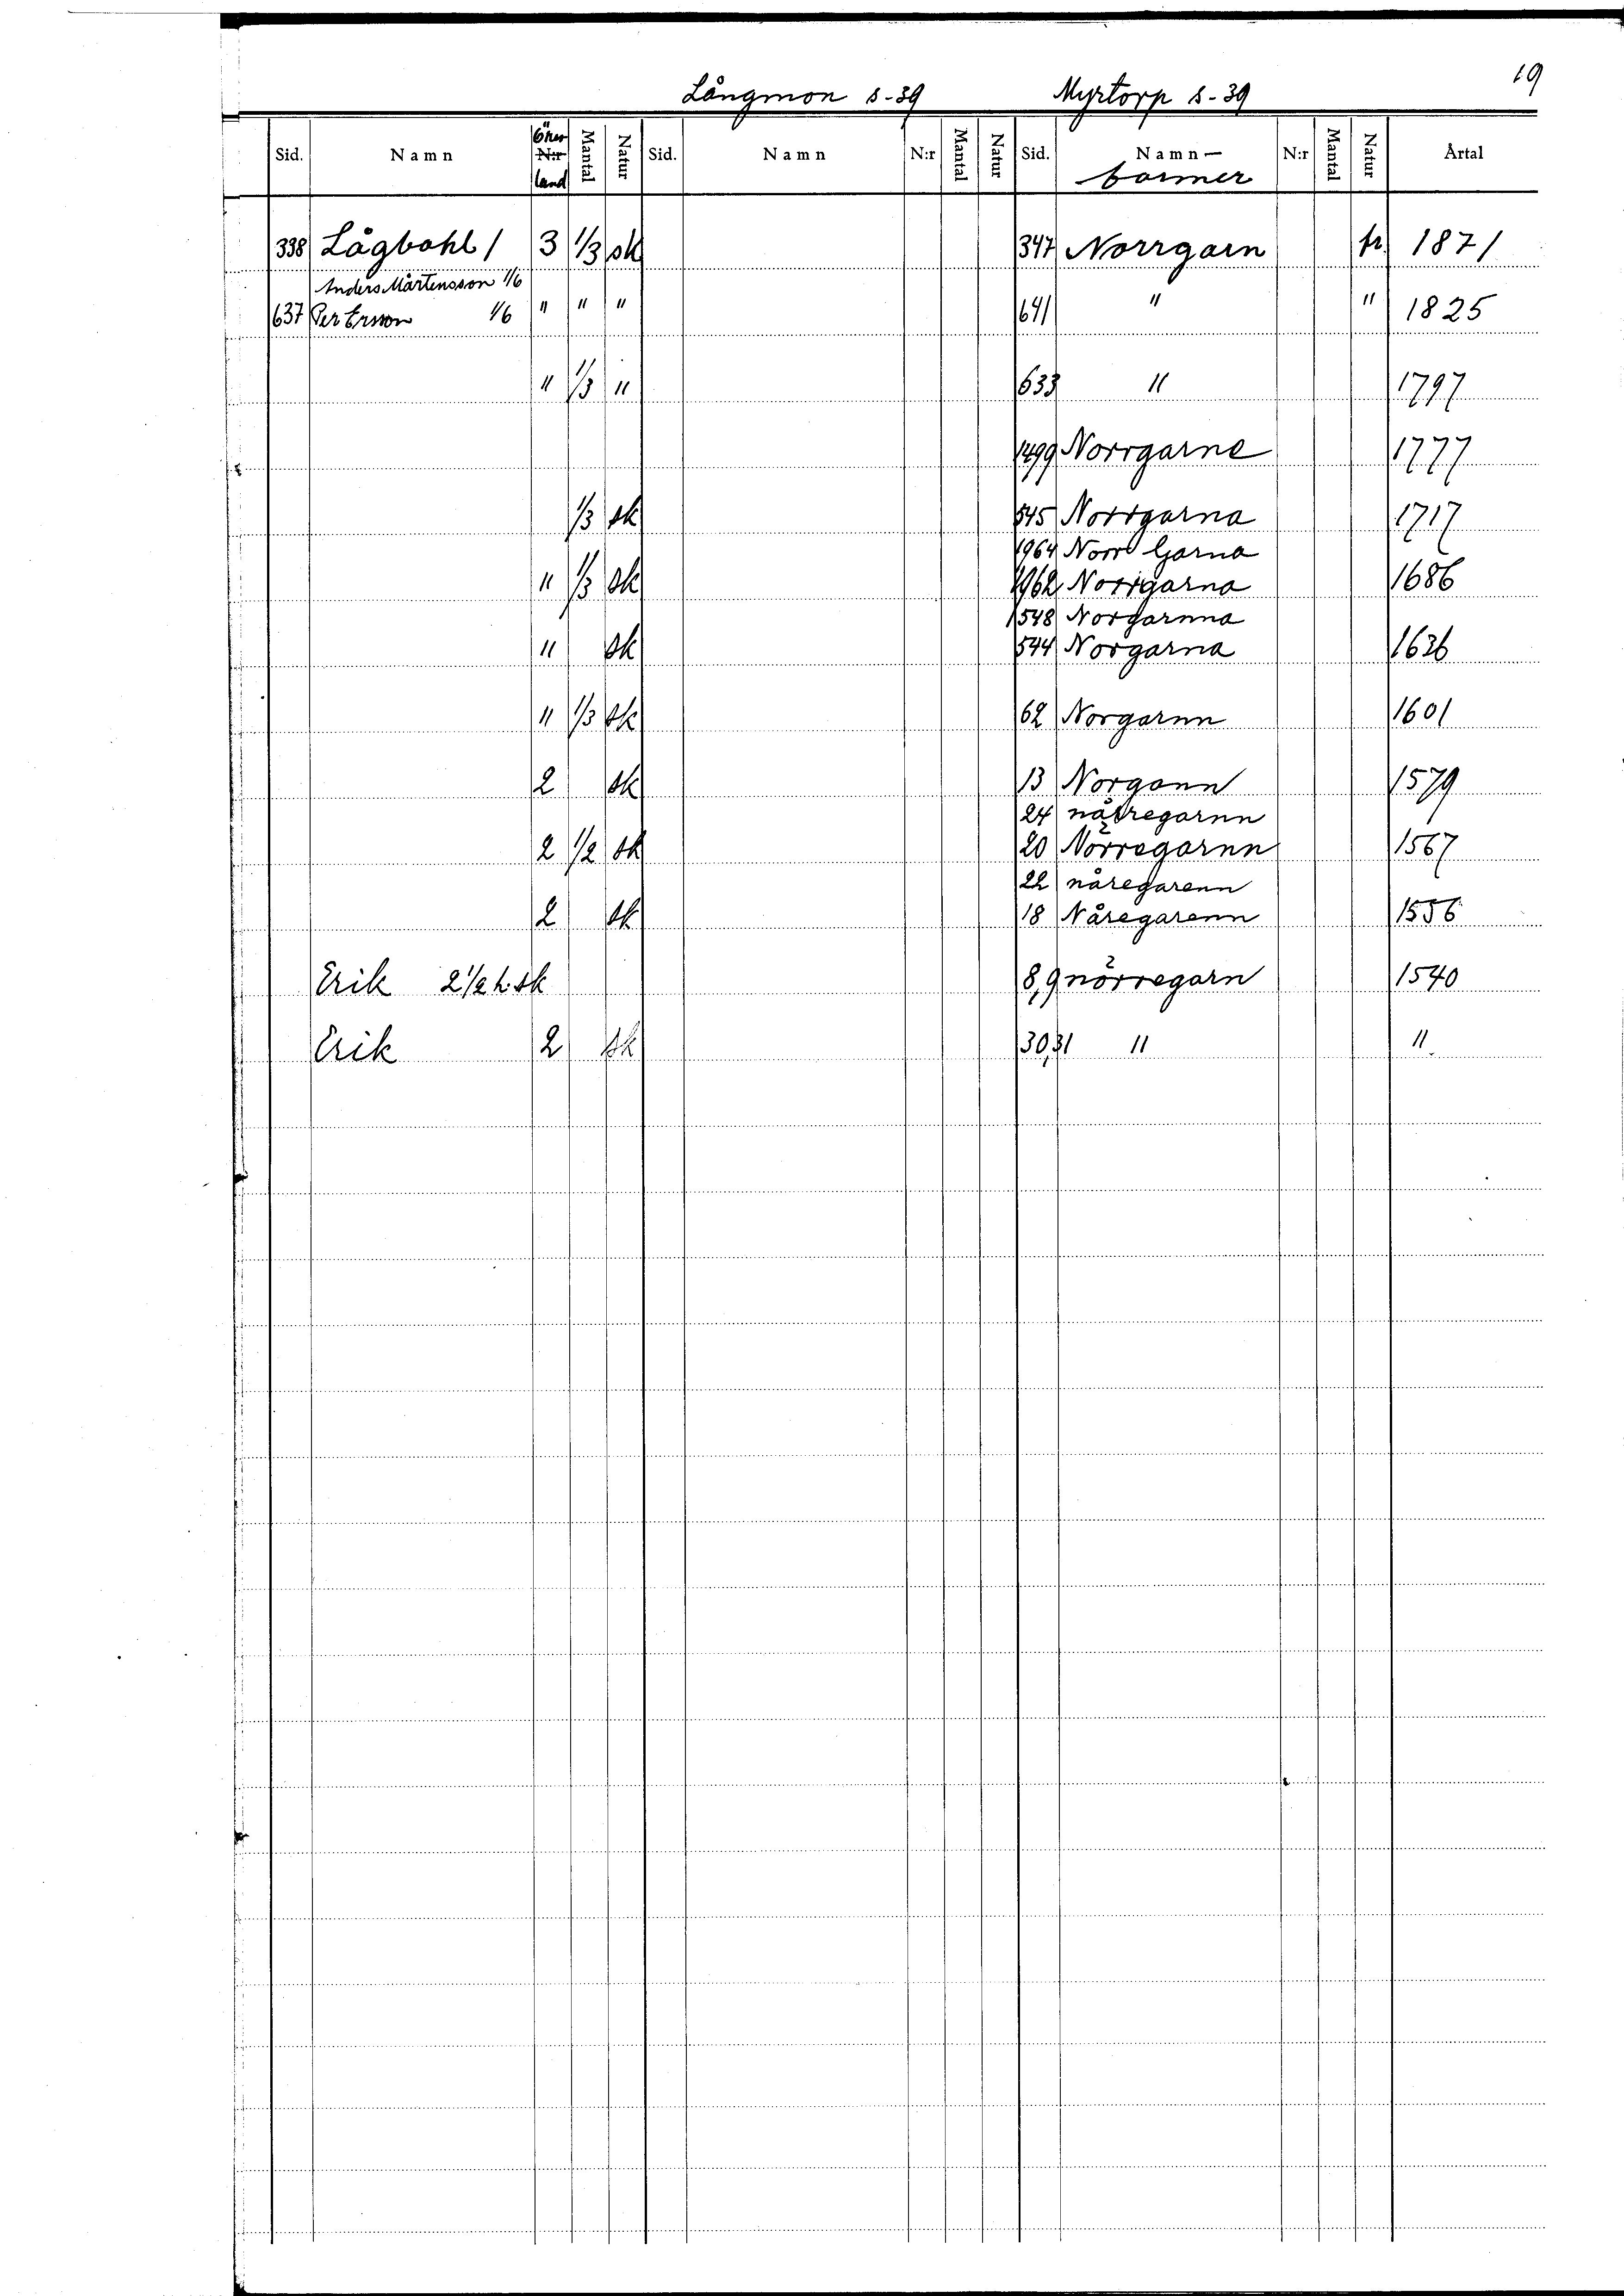 19
Långmon s-39 Myrtorp s-39
Sid. Namn Öres N:r land Mantal Natur Sid. Namn N:r Mantal Natur Sid. Namn- former N:r Mantal Natur Årtal
338 Lågbohl 1 3 1/3 sk 347 Norrgarn fr 1871
Anders Mårtensson 1/6
637 Per Ersson 1/6 " " " 641 " " 1825
" 1/3 " 633 " 1797
1499 Norrgarne 1777
1/3 sk 545 Norrgarna 1717
1964 Norr Garna
" 1/3 sk 1962 Norrgarna 1686
1548 Norgarnna
" sk 544 Norgarna 1636
" 1/3 sk 62 Norgarnn 1601
2 sk 13 Norgann 1579
24 nårregarnn
2 1/2 sk 20 Norregarnn 1567
22 nåregarenn
2 sk 18 Nåregarenn 1556
Erik 2 1/2 h. sk 8,9 nörregarn 1540
Erik 2 sk 30,31 " "